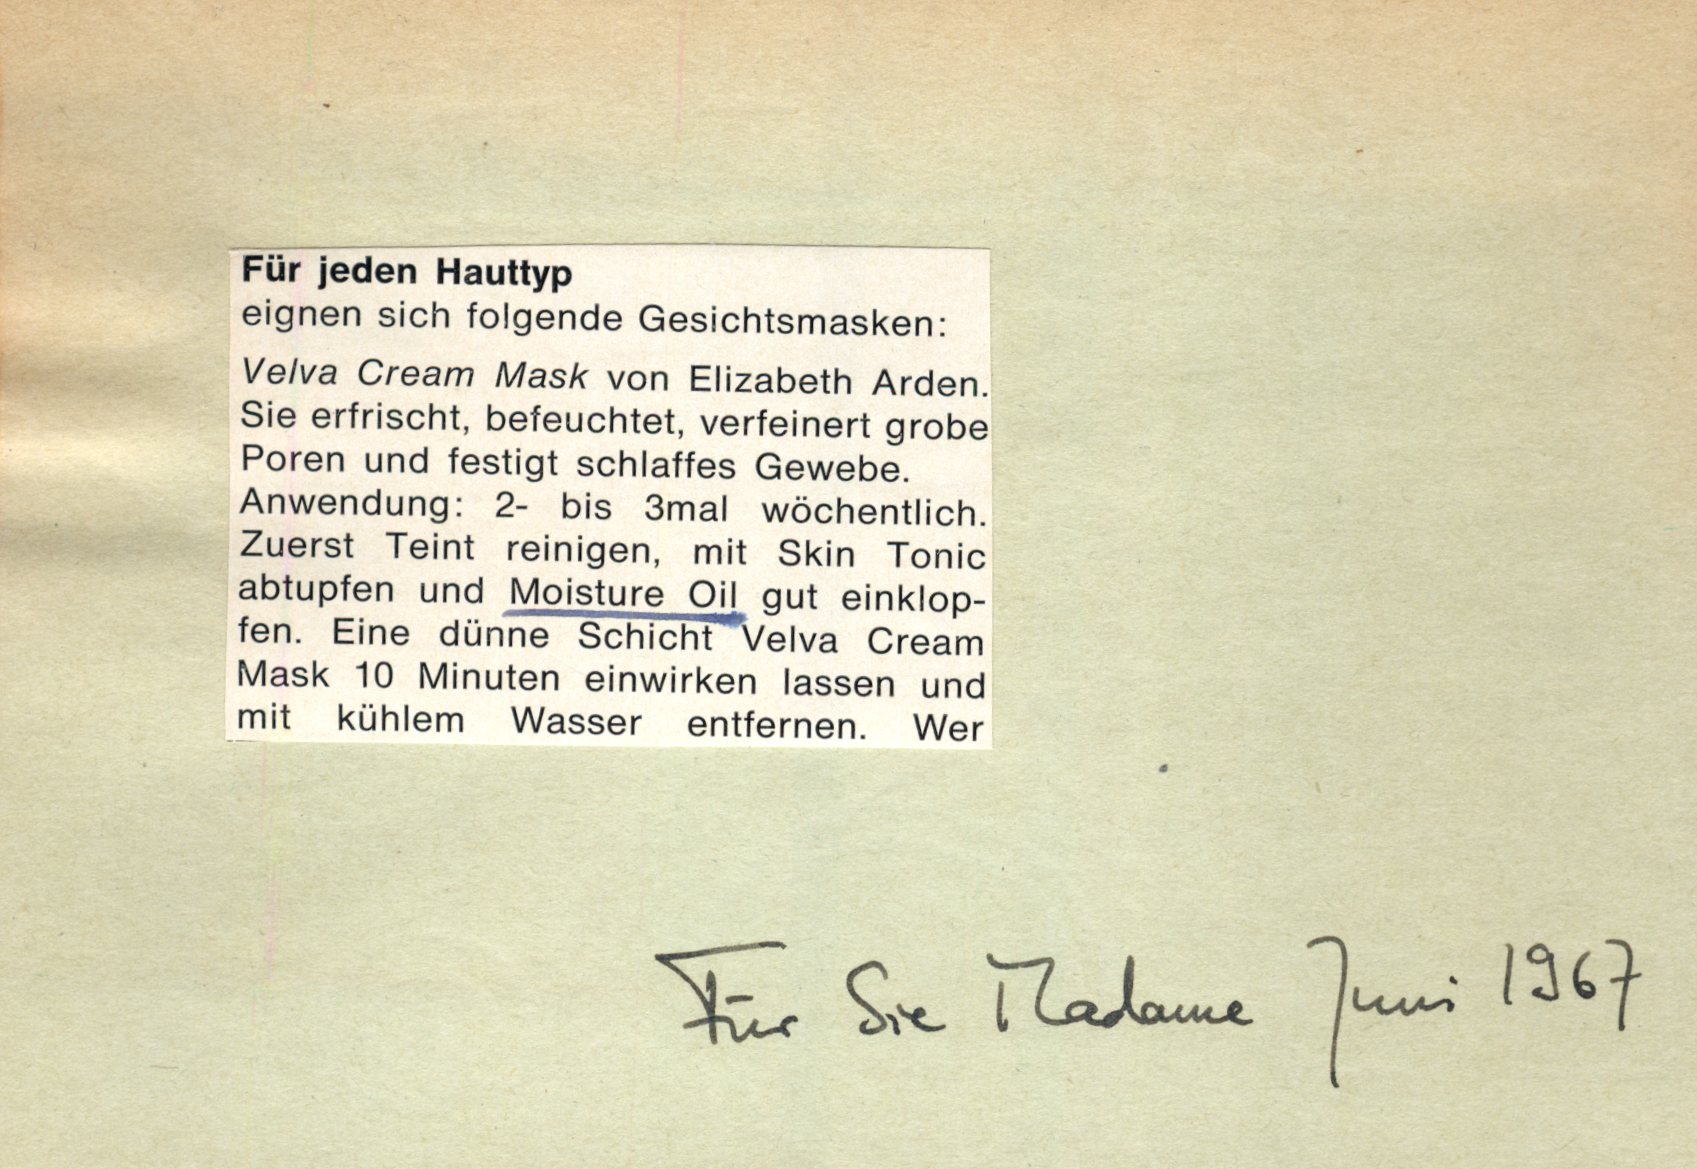 Für jeden Hauttyp
eignen sich folgende Gesichtsmasken:
Velva Cream Mask von Elizabeth Arden.
Sie erfrischt, befeuchtet, verfeinert grobe
Poren und festigt schlaffes Gewebe.
Anwendung: 2- bis 3mal wöchentlich.
Zuerst Teint reinigen, mit Skin Tonic
abtupfen und Moisture Oil gut einklop-
fen. Eine dünne Schicht Velva Cream
Mask 10 Minuten einwirken lassen und
mit kühlem Wasser entfernen. Wer
Für Sie Madame Juni 1967